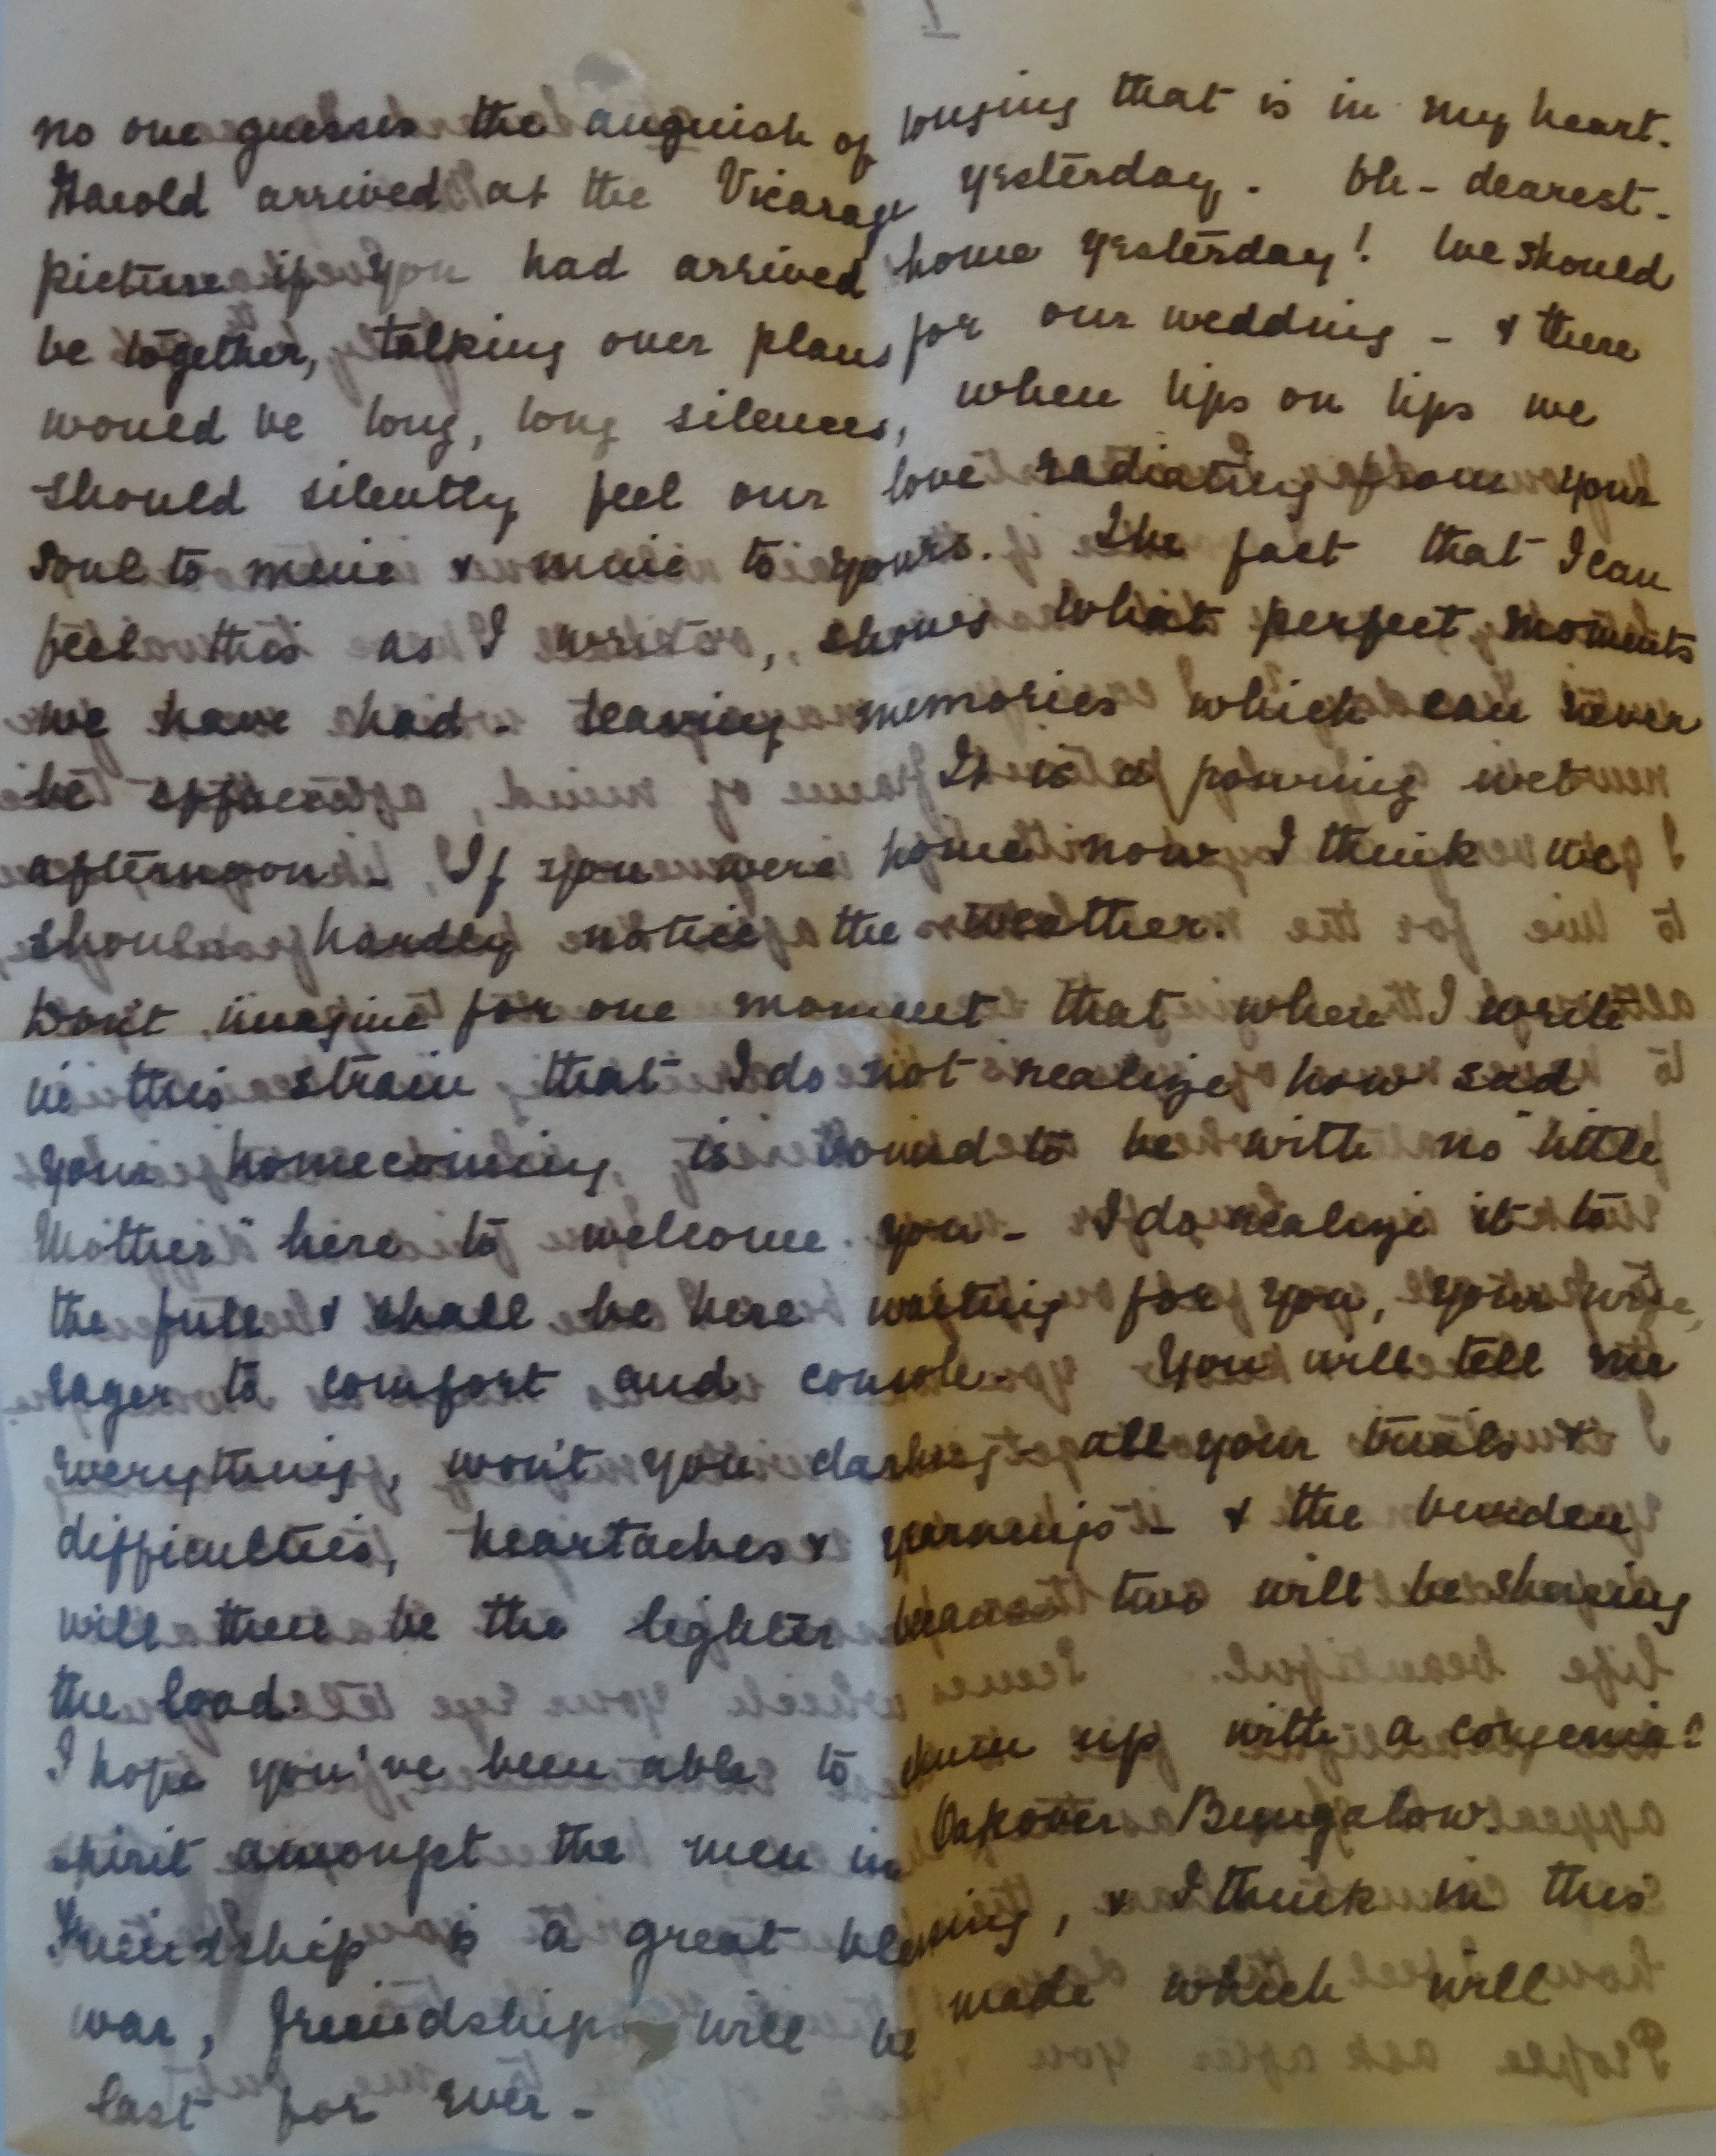 no one guesses the anguish of longing that is in my heart.
Harold arrived at the Vicarage yesterday. Oh - dearest -
picture if you had arrived home yesterday! We should
be together, talking over plans for our wedding - & there
would be long, long silences, when lips on lips we
should silently feel our love radiating from your
soul to mine & mine to yours. The fact that I can
feel this as I write, shows what perfect moments
we have had - leaving memories which can never
be effaced. It is a pouring wet
afternoon - If you were home now I think we
should hardly notice the weather.
Don't imagine for one moment that when I write
in this strain that I do not realize how sad
your homecoming, is bound to be with no "little
Mother" here to welcome you - I do realize it to
the full & shall be here waiting for you, your wife,
eager to comfort and console. You will tell me
everything, won't you darling - all your trials &
difficulties, heartaches & yearnings - & the burden
will then be the lighter because two will be sharing
the load.
I hope you've been able to chum up with a congenial
spirit amongst the men in Oakover Bungalow.
Friendship is a great blessing, & I think in this
war, friendships will be made which will
last for ever -